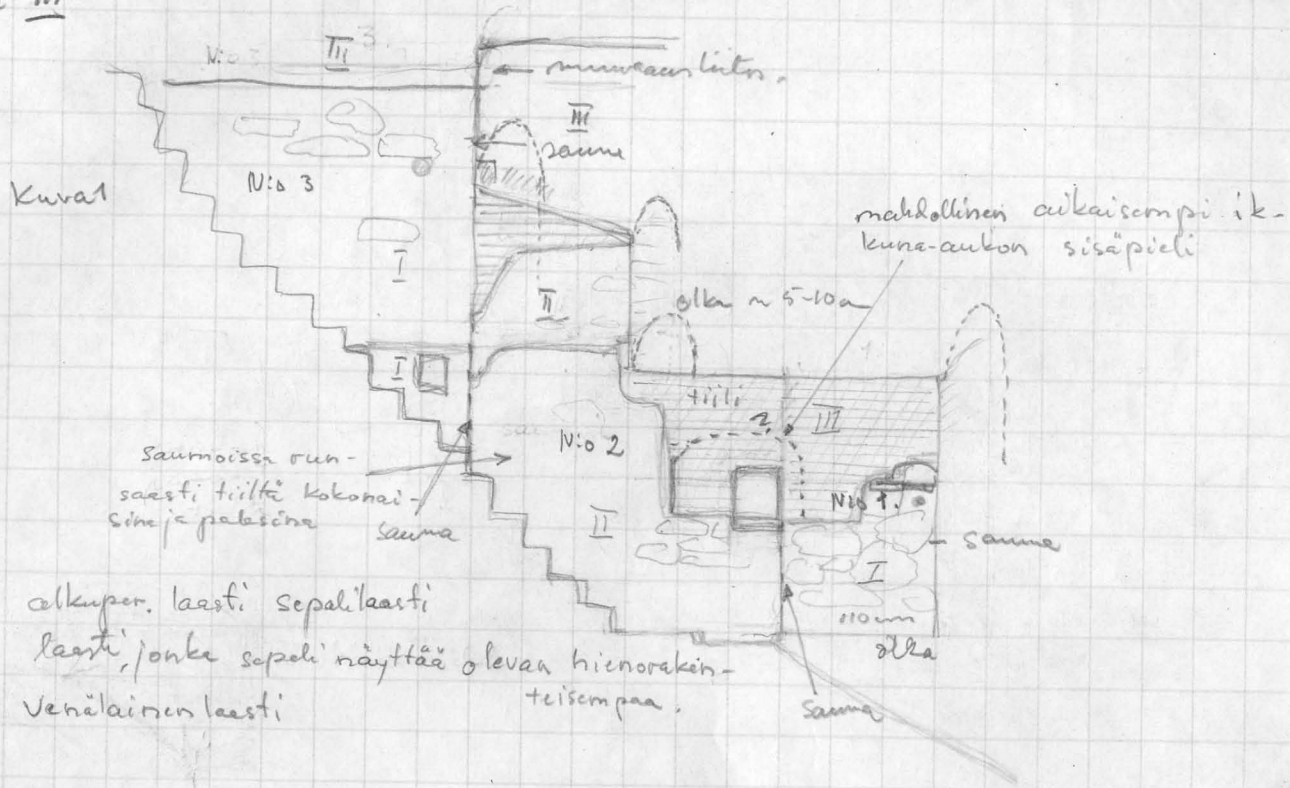 III
N:o 3
III 3.
muurausliitos.
III
sauma
N:o 3
Kuva 1
I
mahdollinen aikaisempi ik-
kuna-aukon sisäpieli
II
olka n 5-10
I
tiili
?
III
N:o 2
N:o 1.
saumoissa run-
saasti tiiltä kokonai-
sina ja paloina
sauma
II
sauma
I
olka
sauma
alkuper. laasti sepelilaasti
laasti, jonka sepeli näyttää olevan hienoraken-
teisempaa.
Venäläinen laasti